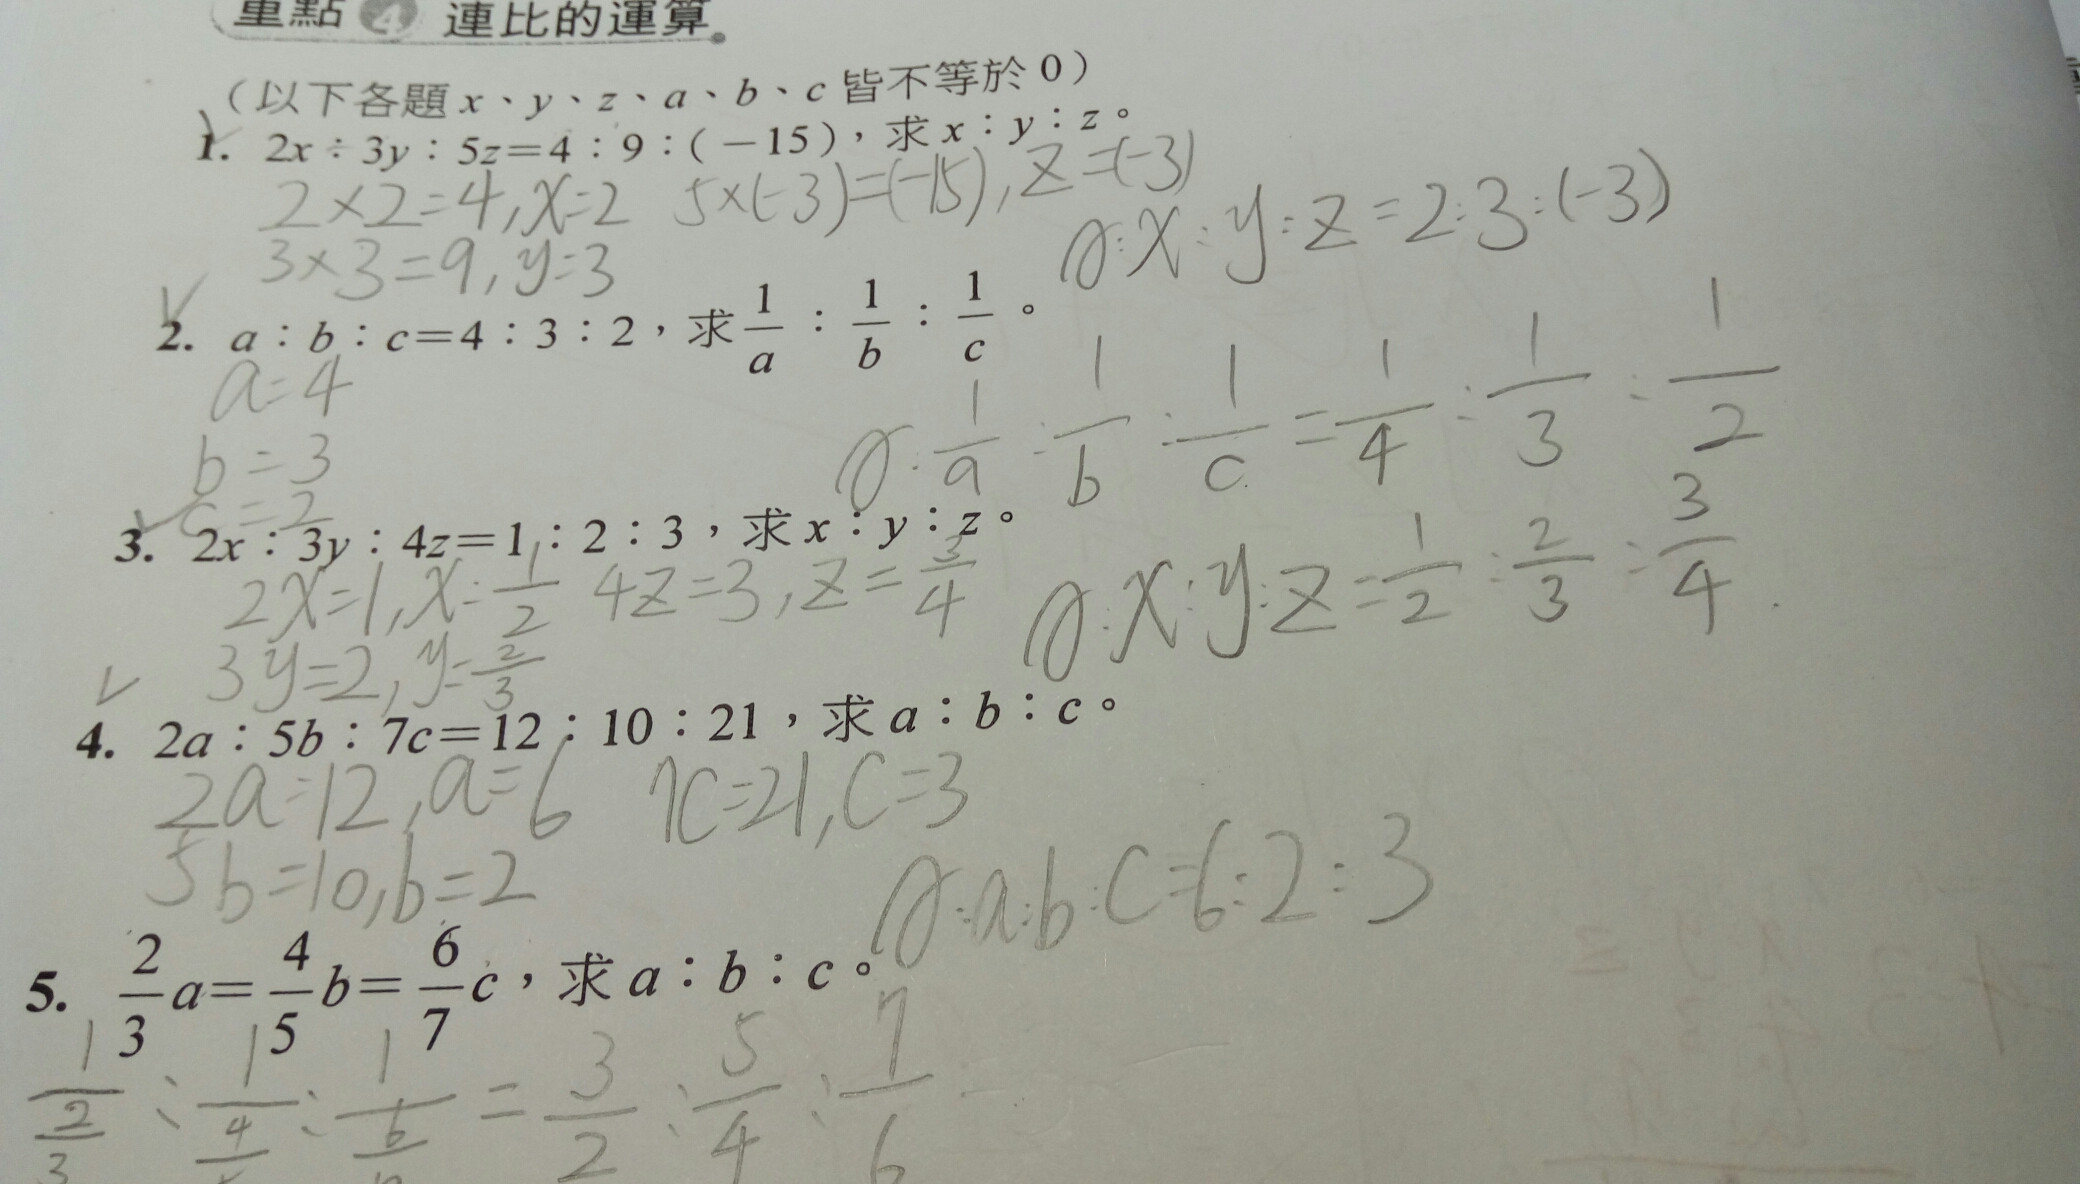 重點 4 連比的運算
(以下各題 x、y、z、a、b、c 皆不等於 0)
1. 2x：3y：5z=4：9：(−15)，求 x：y：z。
2×2=4, x=2 5×(-3)=(-15), z=(-3)
3×3=9, y=3
A:x:y:z=2:3:(-3)
2. a：b：c=4：3：2，求 1/a：1/b：1/c。
a=4
b=3
c=2
A:1/a:1/b:1/c=1/4:1/3:1/2
3. 2x：3y：4z=1：2：3，求 x：y：z。
2x=1, x=1/2 4z=3, z=3/4
3y=2, y=2/3
A:x:y:z=1/2:2/3:3/4
4. 2a：5b：7c=12：10：21，求 a：b：c。
2a=12, a=6 7c=21, c=3
5b=10, b=2
A:a:b:c=6:2:3
5. 2/3a=4/5b=6/7c，求 a：b：c。
1/(2/3):1/(4/5):1/(6/7)=3/2:5/4:7/6